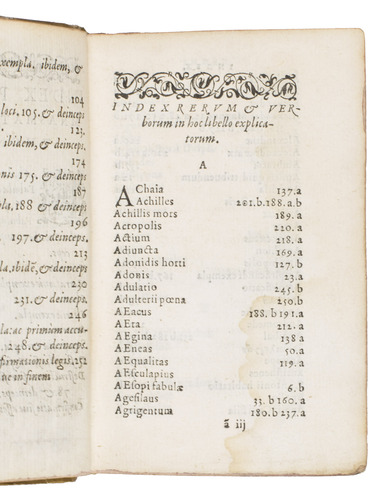 xempla, ibidem, &
104
loci. 105. & deinceps
123.
ibidem, & deinceps.
174
onis 175. & deinceps
187
pla, 188 & deinceps
196
197. & deinceps.
213
la, ibidē, & deinceps
230
231. & deinceps.
246
la: ac primùm accu-
248. & deinceps.
firmationis legis. 252
in finem
INDEX RERVM & VER-
borum in hoc libello explica-
torum.
A
AChaia 137.a
Achilles 201.b.188.a.b
Achillis mors 189.a
Acropolis 220.a
Actium 218.a
Adiuncta 169.a
Adonidis horti 127.b
Adonis 23.a
Adulatio 245.b
Adulterii pœna 250.b
AEacus 188.b 191.a
AEta 212.a
AEgina 138 a
AEneas 50.a
AEqualitas 119.a
AEsculapius
AEsopi fabulæ 6.b
Agesilaus 33.b 160.a
Agrigentum 180.b 237.a
ā iij